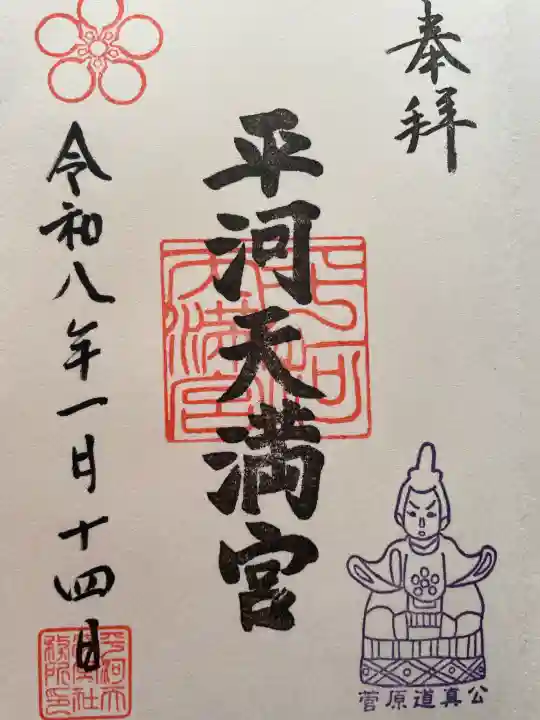 奉拝
平河天満宮
令和八年一月十四日
平河天満宮
平河天満社務所印
菅原道真公